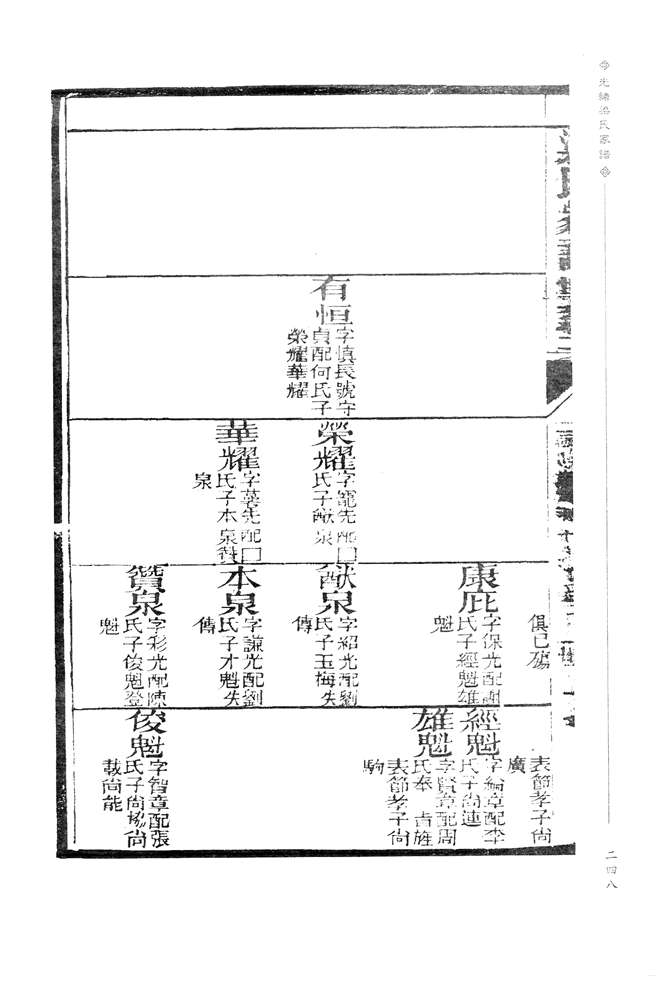 光緒梁氏家譜
有恒
字慎長號守
貞配何氏子
榮耀華耀
榮耀
字寵先配□
氏子猷泉
華耀
字英先配□
氏子本泉贊
泉
俱已殤
康庇
字保光配謝
氏子經魁雄
魁
猷泉
字紹光配劉
氏子玉梅失
傳
本泉
字謙光配劉
氏子才魁失
傳
贊泉
字彩光配陳
氏子俊魁登
魁
表節孝子尚
廣
經魁
字綸章配李
氏子尚連
雄魁
字賢章配周
氏奉 旨旌
表節孝子尚
駒
俊魁
字智章配張
氏子尚揚尚
載尚能
二四八